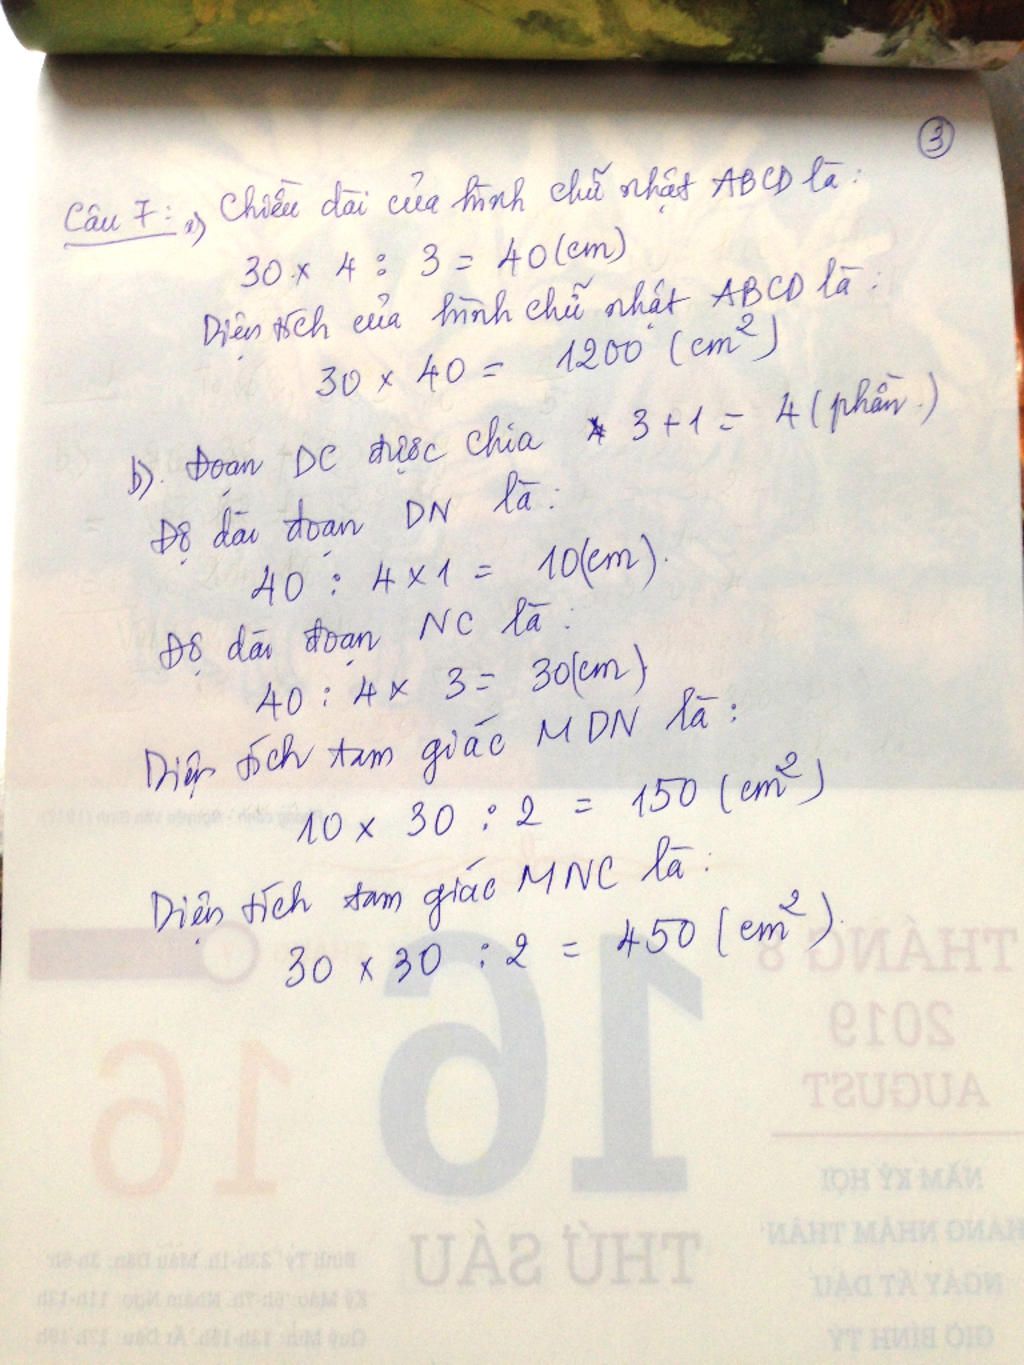 3
Câu 7: a) Chiều dài của hình chữ nhật ABCD là:
30 x 4 : 3 = 40(cm)
Diện tích của hình chữ nhật ABCD là:
30 x 40 = 1200 (cm²)
b). Đoạn DC được chia 3+1 = 4 (phần.)
Độ dài đoạn DN là:
40 : 4 x 1 = 10(cm).
Độ dài đoạn NC là:
40 : 4 x 3 = 30(cm)
Diện tích tam giác MDN là:
10 x 30 : 2 = 150 (cm²)
Diện tích tam giác MNC là:
30 x 30 : 2 = 450 (cm²).
16
THÁNG 8
2019
AUGUST
16
THỨ SÁU
NĂM KỶ HỢI
THÁNG NHÂM THÂN
NGÀY ẤT DẬU
GIỜ BÍNH TÝ